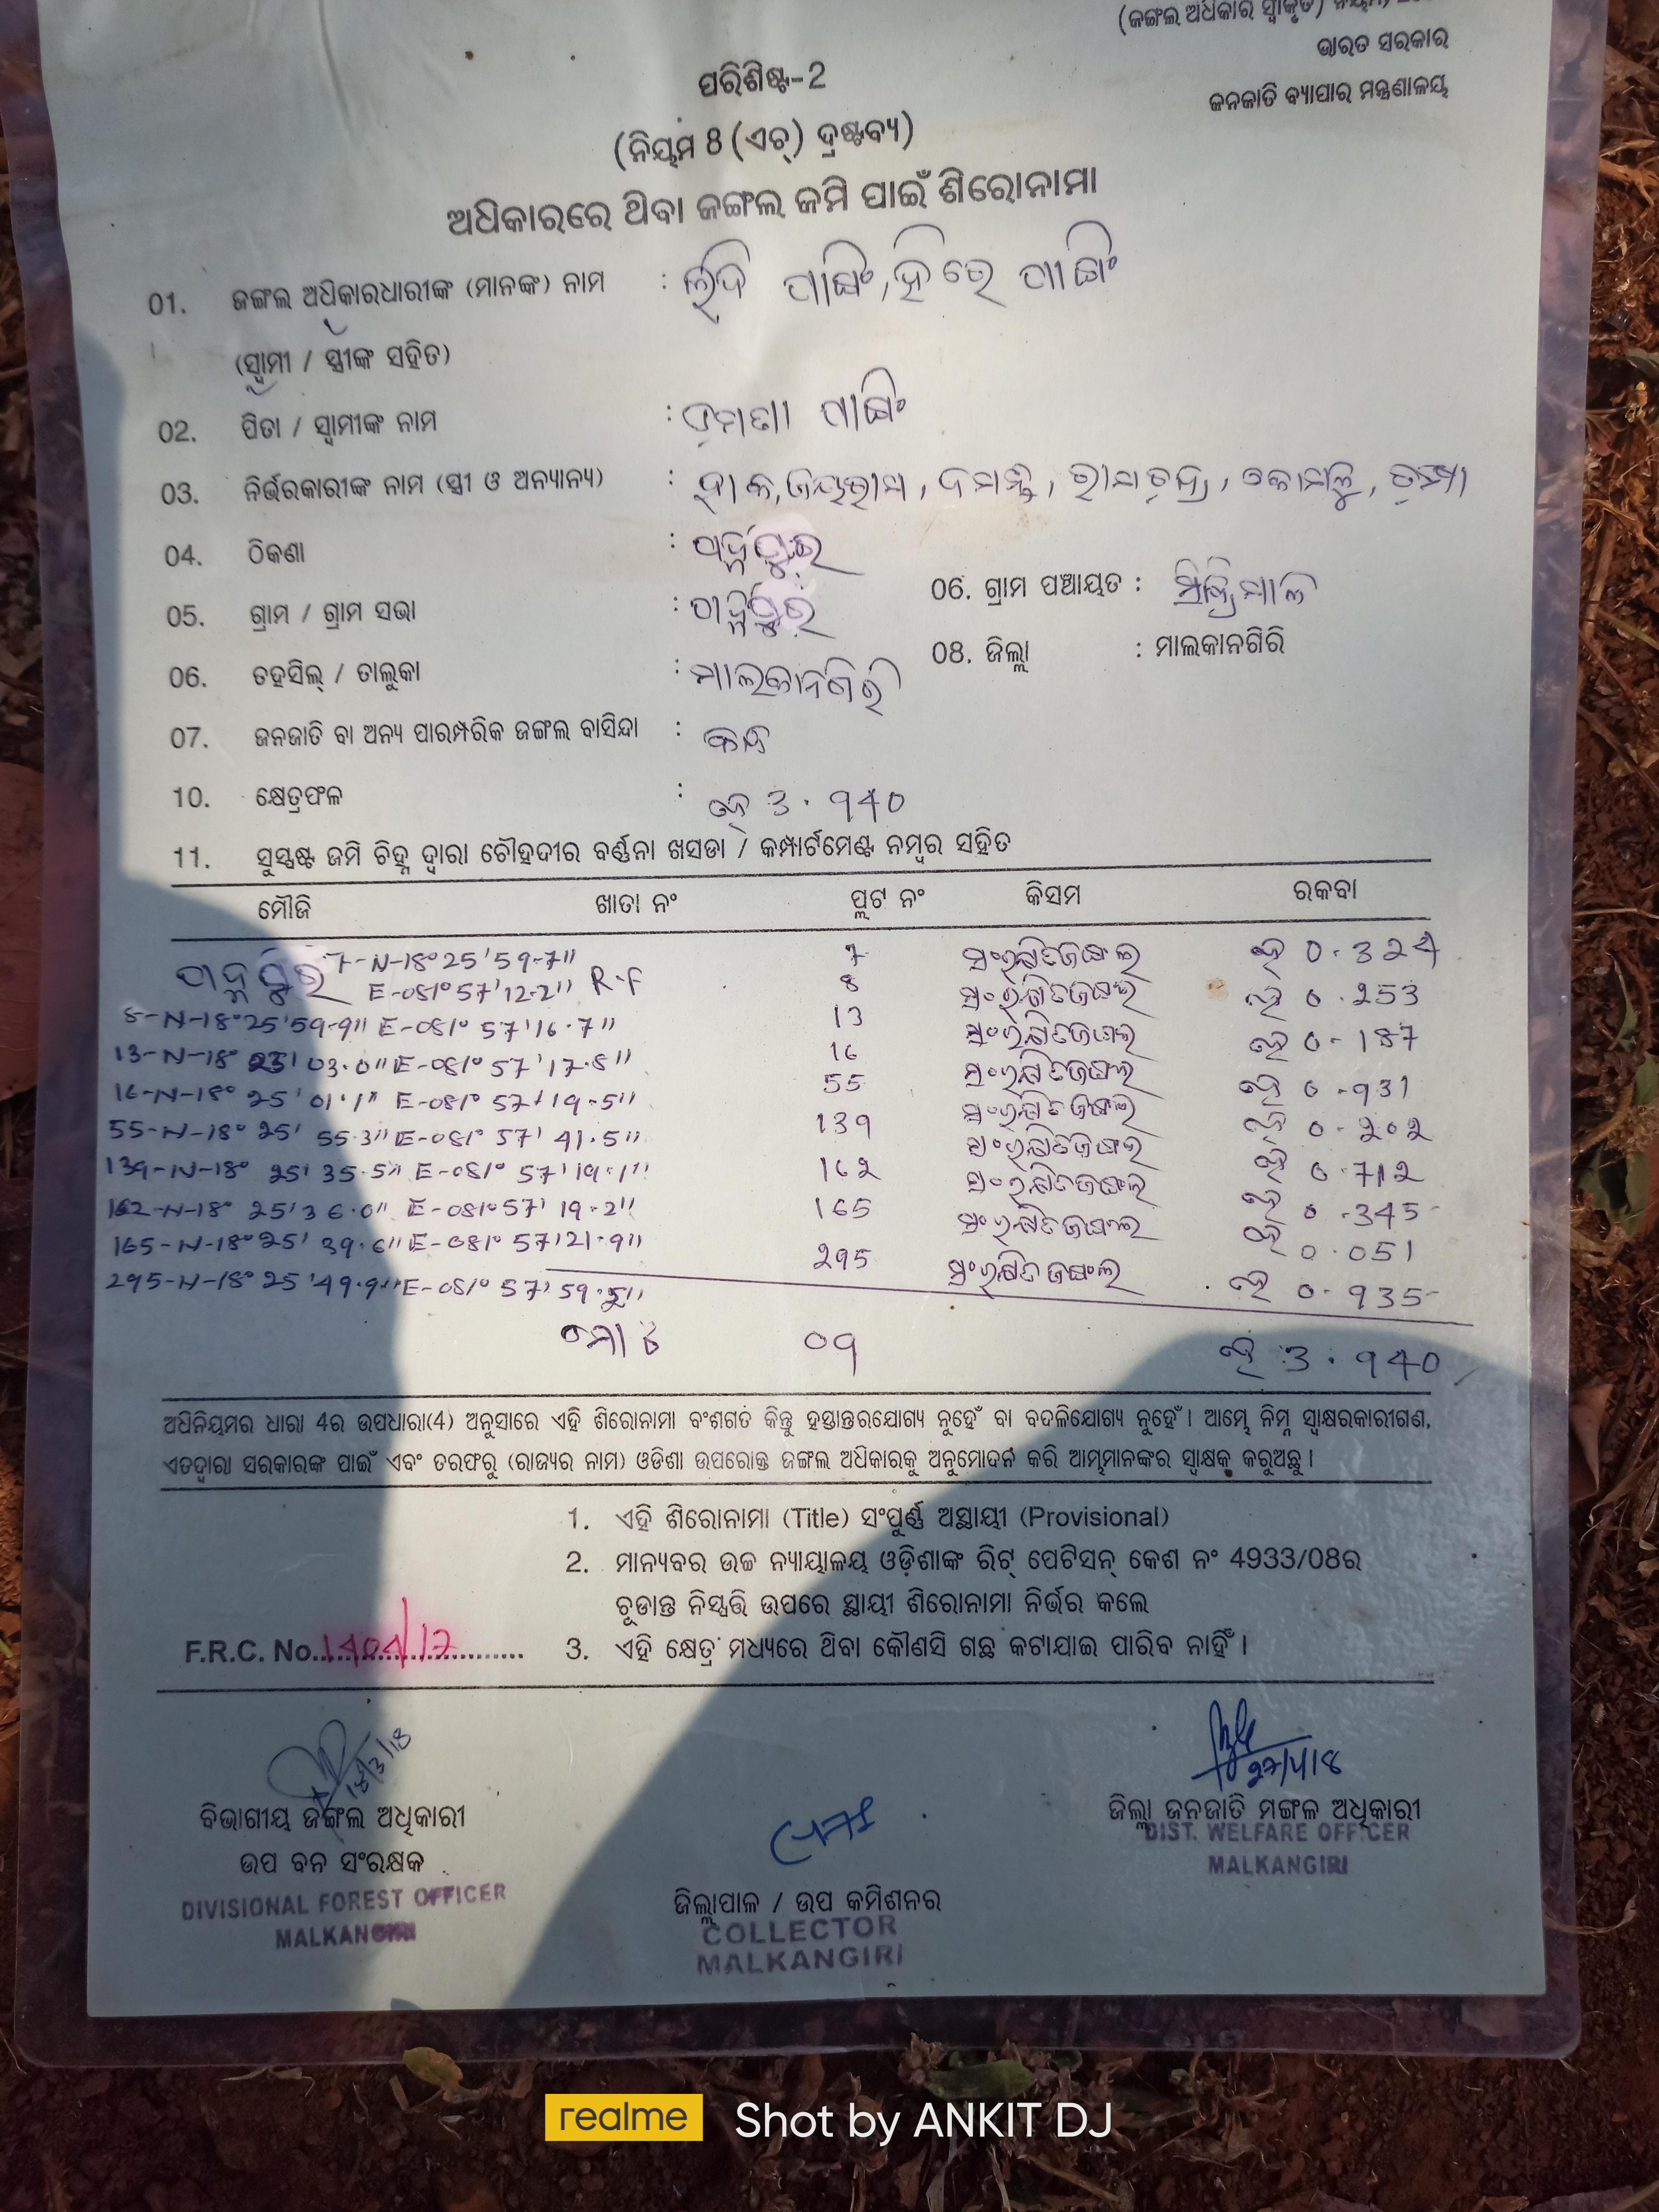 (ଜଙ୍ଗଲ ଅଧିକାର ସ୍ୱୀକୃତି) ନିୟମ,
ଭାରତ ସରକାର
ଜନଜାତି ବ୍ୟାପାର ମନ୍ତ୍ରଣାଳୟ
ପରିଶିଷ୍ଟ-2
(ନିୟମ 8 (ଏଚ୍) ଦ୍ରଷ୍ଟବ୍ୟ)
ଅଧିକାରରେ ଥିବା ଜଙ୍ଗଲ ଜମି ପାଇଁ ଶିରୋନାମା
01. ଜଙ୍ଗଲ ଅଧିକାରଧାରୀଙ୍କ (ମାନଙ୍କ) ନାମ :
(ସ୍ୱାମୀ / ସ୍ତ୍ରୀଙ୍କ ସହିତ)
02. ପିତା / ସ୍ୱାମୀଙ୍କ ନାମ :
03. ନିର୍ଭରକାରୀଙ୍କ ନାମ (ସ୍ତ୍ରୀ ଓ ଅନ୍ୟାନ୍ୟ) : ଜୟରାମ,
04. ଠିକଣା :
05. ଗ୍ରାମ / ଗ୍ରାମ ସଭା : 06. ଗ୍ରାମ ପଞ୍ଚାୟତ :
06. ତହସିଲ୍ / ତାଲୁକା : ମାଲକାନଗିରି 08. ଜିଲ୍ଲା : ମାଲକାନଗିରି
07. ଜନଜାତି ବା ଅନ୍ୟ ପାରମ୍ପରିକ ଜଙ୍ଗଲ ବାସିନ୍ଦା :
10. କ୍ଷେତ୍ରଫଳ : ହେ 3.940
11. ସୁସ୍ପଷ୍ଟ ଜମି ଚିହ୍ନ ଦ୍ୱାରା ଚୌହଦୀର ବର୍ଣ୍ଣନା ଖସଡା / କମ୍ପାର୍ଟମେଣ୍ଟ ନମ୍ବର ସହିତ
ମୌଜି ଖାତା ନଂ ପ୍ଲଟ ନଂ କିସମ ରକବା
7-N-18°25'59.7" 7 ସଂରକ୍ଷିତ ଜଙ୍ଗଲ ହେ 0.324
E-081°57'12.2" R.F 8 ସଂରକ୍ଷିତ ଜଙ୍ଗଲ ହେ 0.253
8-N-18°25'59.9" E-081°57'16.7" 13 ସଂରକ୍ଷିତ ଜଙ୍ଗଲ ହେ 0.187
13-N-18° 03.0" E-081°57'17.8" 16 ସଂରକ୍ଷିତ ଜଙ୍ଗଲ ହେ 0.931
16-N-18°25'01.1" E-081°57'19.5" 55 ସଂରକ୍ଷିତ ଜଙ୍ଗଲ ହେ 0.202
55-N-18°25'55.3" E-081°57'41.5" 139 ସଂରକ୍ଷିତ ଜଙ୍ଗଲ ହେ 0.712
139-N-18°25'35.5" E-081°57'19.1" 162 ସଂରକ୍ଷିତ ଜଙ୍ଗଲ ହେ 0.345
162-N-18°25'36.0" E-081°57'19.2" 165 ସଂରକ୍ଷିତ ଜଙ୍ଗଲ ହେ 0.051
165-N-18°25'39.6" E-081°57'21.9" 295 ସଂରକ୍ଷିତ ଜଙ୍ଗଲ ହେ 0.935
295-N-18°25'49.9" E-081°57'
ମୋଟ 09 ହେ 3.940
ଅଧିନିୟମର ଧାରା 4ର ଉପଧାରା(4) ଅନୁସାରେ ଏହି ଶିରୋନାମା ବଂଶଗତ କିନ୍ତୁ ହସ୍ତାନ୍ତରଯୋଗ୍ୟ ନୁହେଁ ବା ବଦଳିଯୋଗ୍ୟ ନୁହେଁ । ଆମ୍ଭେ ନିମ୍ନ ସ୍ୱାକ୍ଷରକାରୀଗଣ,
ଏତଦ୍ୱାରା ସରକାରଙ୍କ ପାଇଁ ଏବଂ ତରଫରୁ (ରାଜ୍ୟର ନାମ) ଓଡିଶା ଉପରୋକ୍ତ ଜଙ୍ଗଲ ଅଧିକାରକୁ ଅନୁମୋଦନ କରି ଆମ୍ଭମାନଙ୍କର ସ୍ୱାକ୍ଷକ କରୁଅଛୁ ।
1. ଏହି ଶିରୋନାମା (Title) ସଂପୂର୍ଣ୍ଣ ଅସ୍ଥାୟୀ (Provisional)
2. ମାନ୍ୟବର ଉଚ୍ଚ ନ୍ୟାୟାଳୟ ଓଡ଼ିଶାଙ୍କ ରିଟ୍ ପେଟିସନ୍ କେଶ ନଂ 4933/08ର
ଚୂଡାନ୍ତ ନିସ୍ପତ୍ତି ଉପରେ ସ୍ଥାୟୀ ଶିରୋନାମା ନିର୍ଭର କଲେ
F.R.C. No. 3. ଏହି କ୍ଷେତ୍ର ମଧ୍ୟରେ ଥିବା କୌଣସି ଗଛ କଟାଯାଇ ପାରିବ ନାହିଁ ।
18/3/18
27/4/18
ବିଭାଗୀୟ ଜଙ୍ଗଲ ଅଧିକାରୀ
ଉପ ବନ ସଂରକ୍ଷକ
DIVISIONAL FOREST OFFICER
MALKANGIRI
ଜିଲ୍ଲାପାଳ / ଉପ କମିଶନର
COLLECTOR
MALKANGIRI
ଜିଲ୍ଲା ଜନଜାତି ମଙ୍ଗଳ ଅଧିକାରୀ
DIST. WELFARE OFFICER
MALKANGIRI
realme Shot by ANKIT DJ